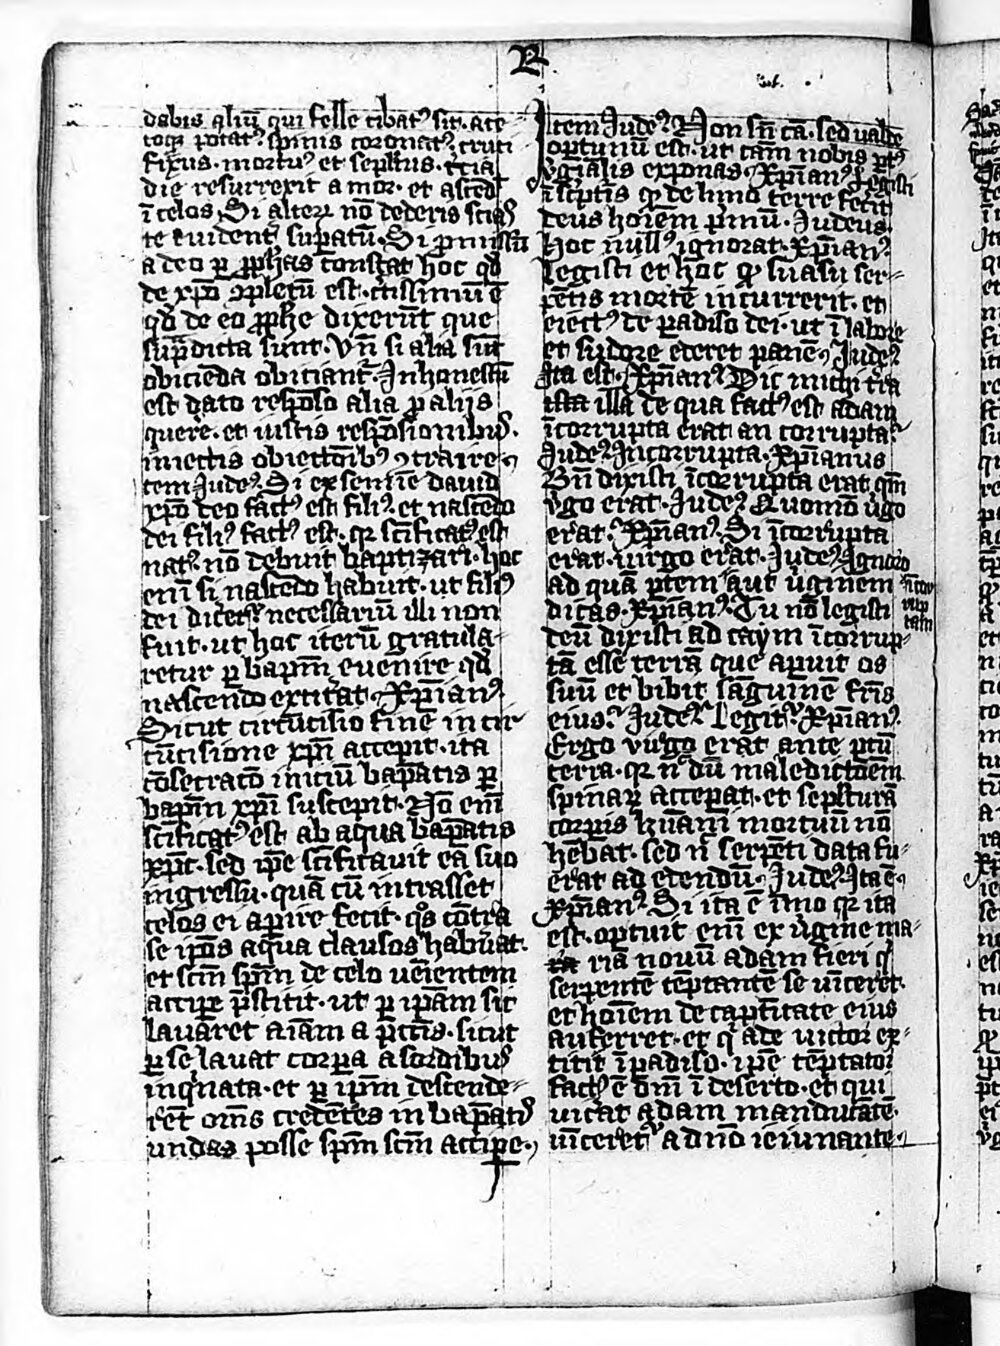 R
dabis aliũ qui felle cibatꝰ sit· ace
toqȝ potatꝰ· spinis coronatꝰ· cruci
fixus· mortuꝰ et sepltus· t̃cia
die resurrexit a mor· et ascẽd
ĩ celos· Si alteꝝ nõ dederis scias
te euidentͬ supatũ· Si
a deo ꝑ ꝓphas constat hoc qd̃
de xp̃o ꝯpletũ est· c̃tissimũ ẽ
qd̃ de eo ꝓphe dixerũt que
sup̃dicta sunt· Vñ si alia sũt
obiciẽda obiciant̃· Inhonestũ
est dato respõso alia ꝓ alijs
querere· et iustis respõsionibus
iniectis obiectõibꝰ ꝯtraire·
tem Iudeꝰ· Si ex sem̃e dauid
xp̃o deo factꝰ est filiꝰ· et nascẽdo
dei filiꝰ factꝰ est· qr sc̃ificatꝰ est
natꝰ· nõ debuit baptizari· hoc
em̃ si nascẽdo habuit· ut filiꝰ
dei diceret̃· necessariũ illi non
fuit· ut hoc iterũ gratula-
retur ꝑ bapm̃ euenire· qd̃
nascendo extiterat· Xp̃ianꝰ
Sicut circũcisio finẽ in cir
cũcisione xp̃i accepit· ita
cõsecracõ iniciũ bap̃atis ꝑ
bapm̃ xp̃i suscepit· Nõ em̃
sc̃ificatꝰ est ab aqua bap̃atis
xp̃c· sed ip̃e sc̃ificauit eã suo
ingressu· quã cũ intrasset
celos ei aperire fecit· q̊s cõtra
se ip̃os aqua clausos habuat·
et sc̃m sp̃m de celo uẽientem
accipe p̃stitit· ut ꝑ ip̃am sic
lauaret aĩam a pc̃cis· sicut
ꝑ se lauat corpora a sordibus
inq̃nata· et ꝑ ip̃m descende-
ret om̃s credẽtes in bap̃atis
undas posse sp̃m sc̃m accipe·
Item Iudeꝰ· Non sñ cã· sed ualde
oportunũ est· ut cam̃ nobis ptꝰ
ũginalis exponas· Xp̃ianꝰ· Legisti
ĩ scptis qd̃ de limo terre fecit
deus hoĩem p̃mũ· Iudeus·
Hoc nullꝰ ignorat· Xp̃ianꝰ·
Legisti et hoc qd̃ suasu ser-
pẽtis mortẽ incurrerit· et
eiectꝰ de padiso dei· ut ĩ labore
et sudore ederet panẽ· Iudeꝰ
Ita est· Xp̃ianꝰ· Dic michi t̃ra
ista illa de qua factꝰ est adam
ĩcorrupta erat an corrupta·
Iudeꝰ· Incorrupta· Xp̃ianus
Bñ dixisti ĩcorrupta erat qm̃
ũgo erat· Iudeꝰ· Quomõ ũgo
erat· Xp̃ianꝰ· Si ĩcorrupta
erat· uirgo erat· Iudeꝰ· Ignoro
ad quã ptem aut ũginem
ĩ cor
rup
tam
dicas· Xp̃ianꝰ· Tu nõ legisti
deũ dixisse ad caym ĩcorrup-
tã esse terrã que aperuit os
suũ et bibit sãguinẽ fr̃is
eius· Iudeꝰ· Legit̃· Xp̃ianꝰ·
Ergo uirgo erat ante ptũ
terra· qr ñ dũ maledictõem
spinaꝝ acceperat· et seplturã
corpis humani mortuũ nõ
hẽbat· sed ñ serpẽti data fu-
erat ad edendũ· Iudeꝰ· Ita ẽ·
Xp̃ianꝰ· Si ita ẽ imo qr ita
est· oportuit em̃ ex ũgine ma-
ria nouũ adam fieri qi
serpentẽ tẽptantẽ se uĩceret·
et hoĩem de captĩtate eius
auferret· et q̃ ade uictor ex-
titit ĩ padiso· ip̃e tẽptator
factꝰ ẽ dñi ĩ deserto· et qui
uicerat adam manducãtẽ·
uĩceret̃ a dño ieiunante·